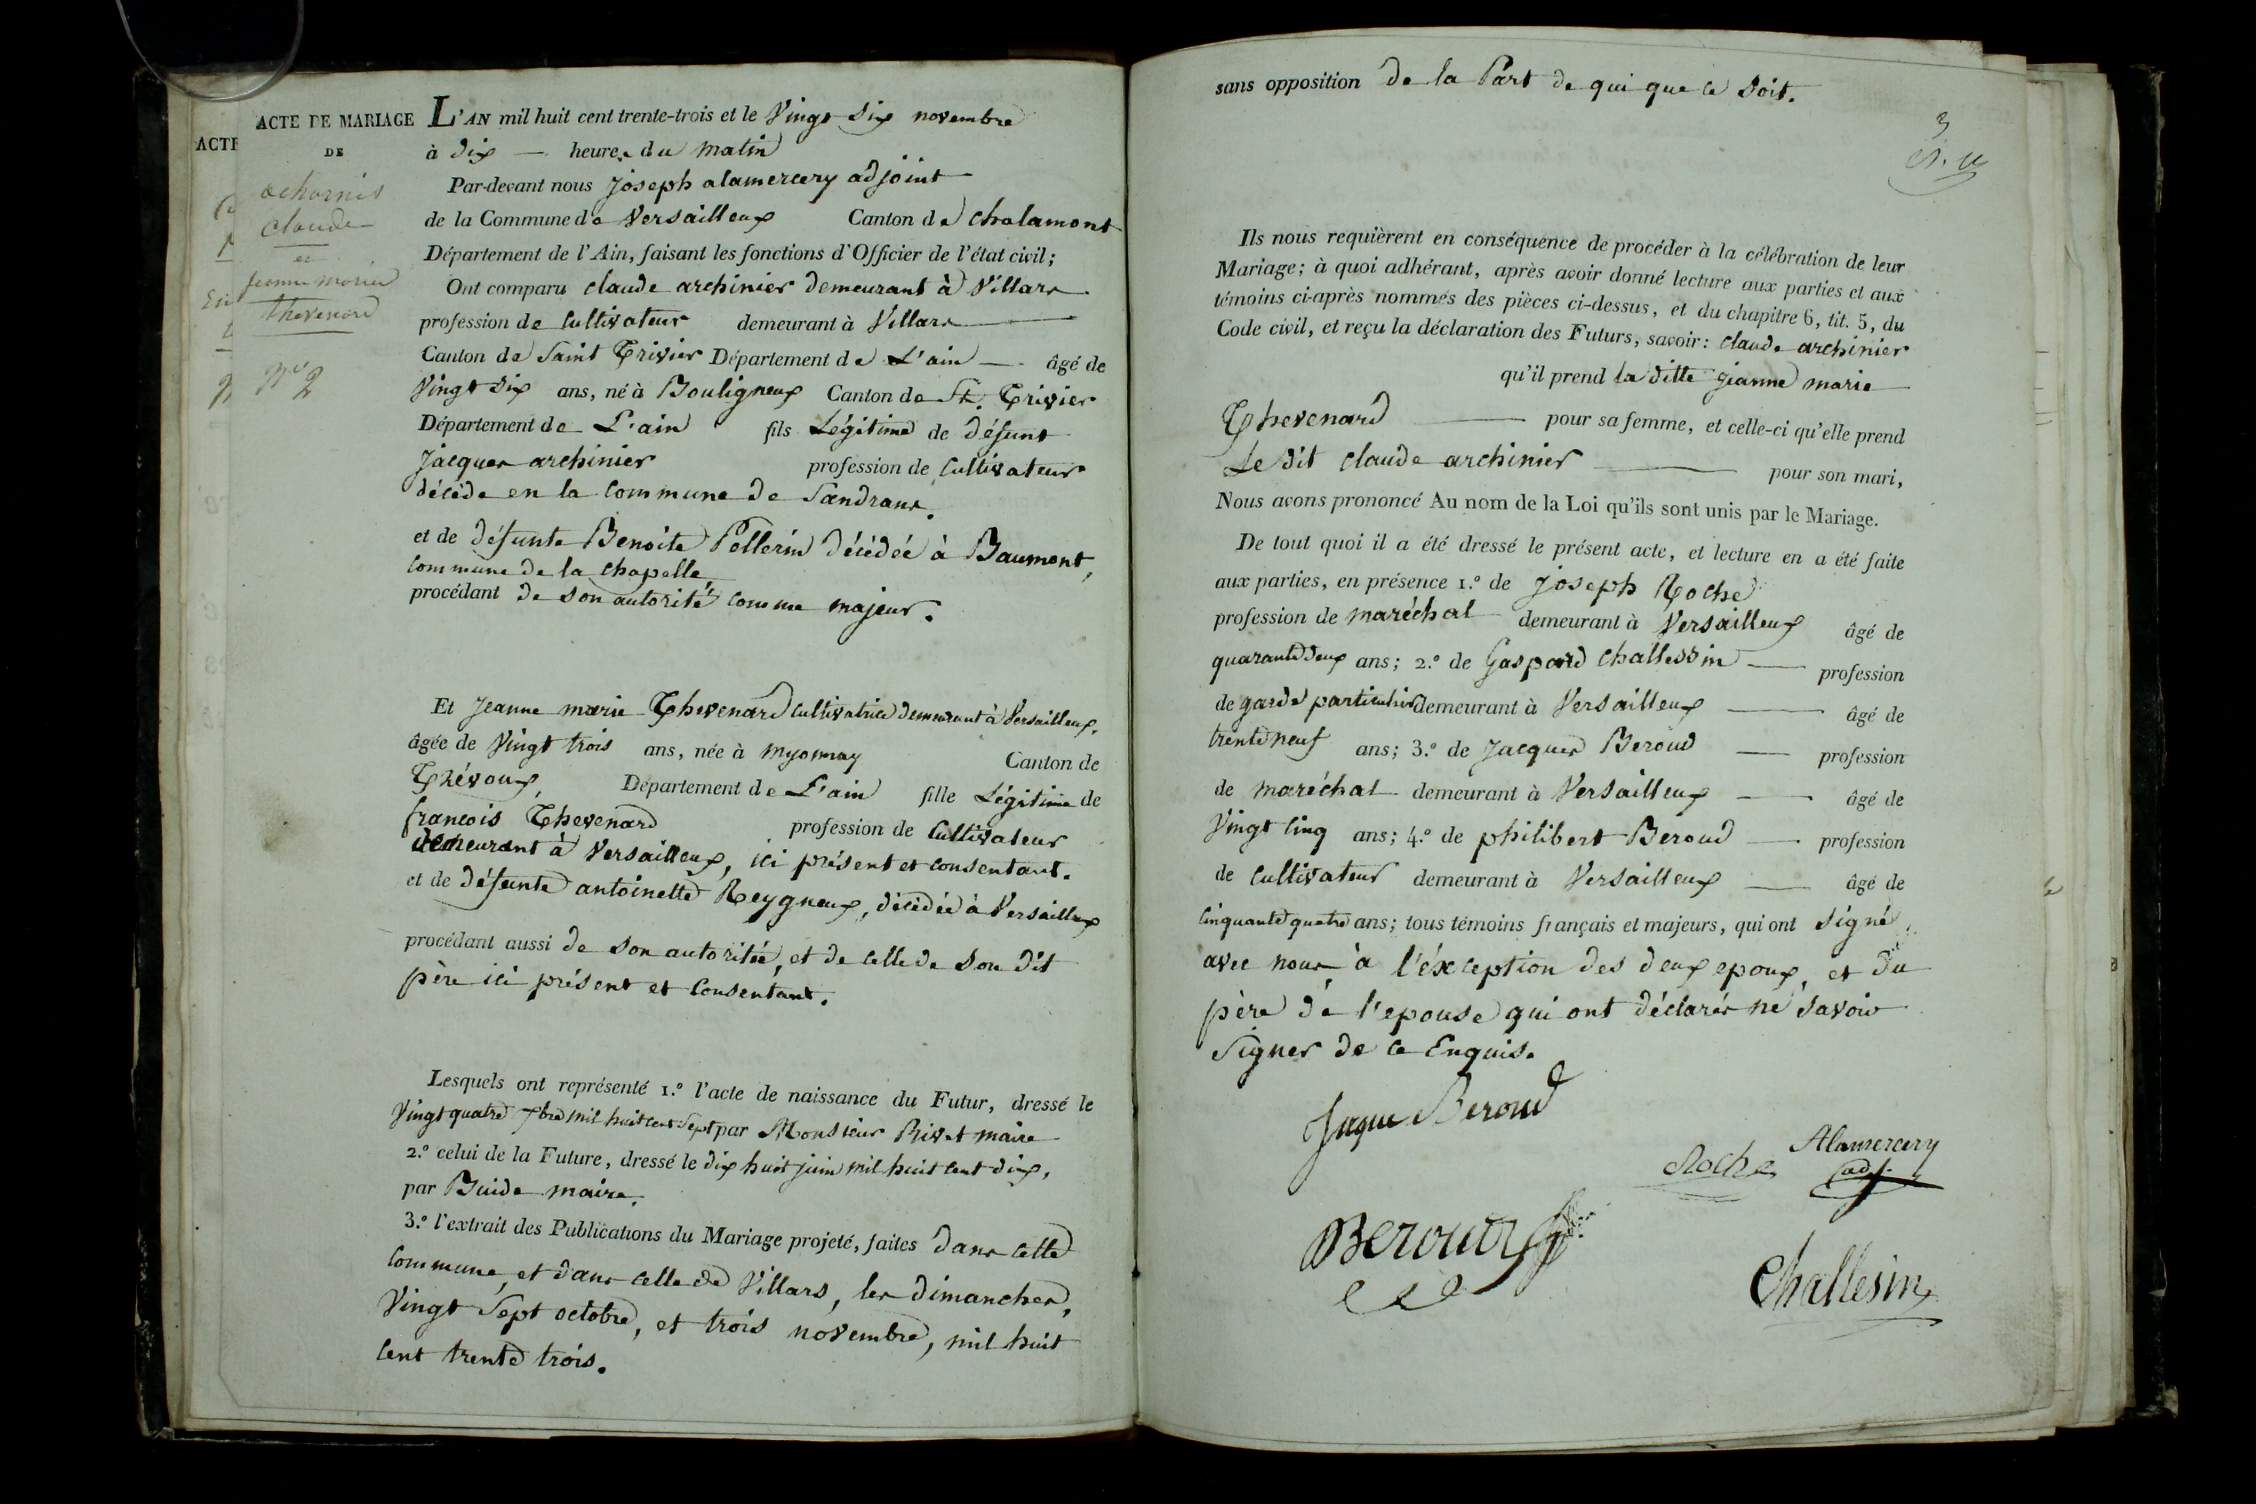 ACTE DE MARIAGE
DE
Claude
et
jeanne marie
thevenard
N° 2
ACTE
L'AN mil huit cent trente-trois et le Vingt Six novembre
à dix — heures du matin
Par-devant nous Joseph alamercery adjoint
de la Commune de Versailleux Canton de chalamont
Département de l'Ain, faisant les fonctions d'Officier de l'état civil;
Ont comparu claude archinier demeurant à Villars
profession de Cultivateur demeurant à Villars
Canton de Saint Trivier Département de L'ain — âgé de
Vingt Six ans, né à Bouligneux Canton de St. Trivier
Département de L'ain fils Légitime de défunt
Jacques archinier profession de Cultivateur
décédé en la commune de Sandrans.
et de défunte Benoite Pellerin décédée à Baumont,
commune de la chapelle,
procédant de son autorité comme majeur.
Et Jeanne marie Thevenard cultivatrice demeurant à Versailleux,
âgée de Vingt trois ans, née à myonnay Canton de
Trévoux, Département de L'ain fille Légitime de
francois Thevenard profession de Cultivateur
demeurant à Versailleux, ici présent et consentant.
et de défunte antoinette Reygneux, décédée à Versailleux
procédant aussi de son autoritée, et de celle de Son dit
père ici présent et Consentant.
Lesquels ont représenté 1.° l'acte de naissance du Futur, dressé le
Vingt quatre 7bre mil huit cent Sept par Monsieur Rivet maire
2.° celui de la Future, dressé le dix huit juin mil huit cent dix,
par Buide maire.
3.° l'extrait des Publications du Mariage projeté, faites dans cette
commune, et dans celle de Villars, les dimanches,
Vingt Sept octobre, et trois novembre, mil huit
cent trente trois.
sans opposition de la Part de qui que ce Soit.
3
Ils nous requièrent en conséquence de procéder à la célébration de leur
Mariage; à quoi adhérant, après avoir donné lecture aux parties et aux
témoins ci-après nommés des pièces ci-dessus, et du chapitre 6, tit. 5, du
Code civil, et reçu la déclaration des Futurs, savoir: claude archinier
qu'il prend la ditte jeanne marie
Thevenard pour sa femme, et celle-ci qu'elle prend
Le dit claude archinier pour son mari,
Nous avons prononcé Au nom de la Loi qu'ils sont unis par le Mariage.
De tout quoi il a été dressé le présent acte, et lecture en a été faite
aux parties, en présence 1.° de Joseph Roche
profession de maréchal demeurant à Versailleux âgé de
quarante deux ans; 2.° de Gaspard challessin — profession
de garde particulier demeurant à Versailleux — âgé de
trente neuf ans; 3.° de Jacques Beroud — profession
de maréchal demeurant à Versailleux — âgé de
Vingt Cinq ans; 4.° de philibert Beroud — profession
de Cultivateur demeurant à Versailleux — âgé de
Cinquante quatre ans; tous témoins français et majeurs, qui ont Signé
avec nous à l'éxception des deux epoux, et du
père de l'epouse qui ont déclarés ne Savoir
Signer de ce Enquis.
Jaque Beroud
Roche
Alamercery
adj.
Beroud
Challesin